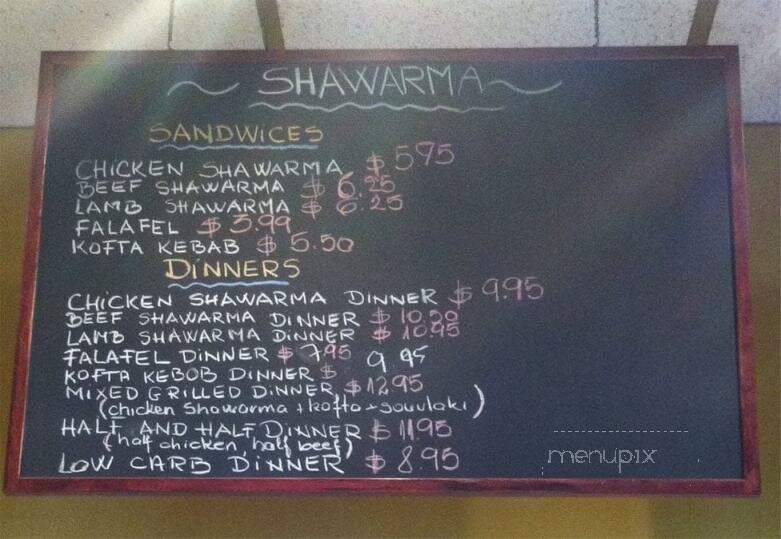 ~ SHAWARMA ~
SANDWICES
CHICKEN SHAWARMA $ 5.95
BEEF SHAWARMA $ 6.25
LAMB SHAWARMA $ 6.25
FALAFEL $ 3.99
KOFTA KEBAB $ 5.50
DINNERS
CHICKEN SHAWARMA DINNER $ 9.95
BEEF SHAWARMA DINNER $ 10.50
LAMB SHAWARMA DINNER $ 10.95
FALAFEL DINNER $ 7.95
KOFTA KEBOB DINNER $ 9 95
MIXED GRILLED DINNER $ 12.95
(chicken Shawarma + kofta + souvlaki)
HALF AND HALF DINNER $ 11.95
(half chicken, half beef)
LOW CARB DINNER $ 8.95
menupix